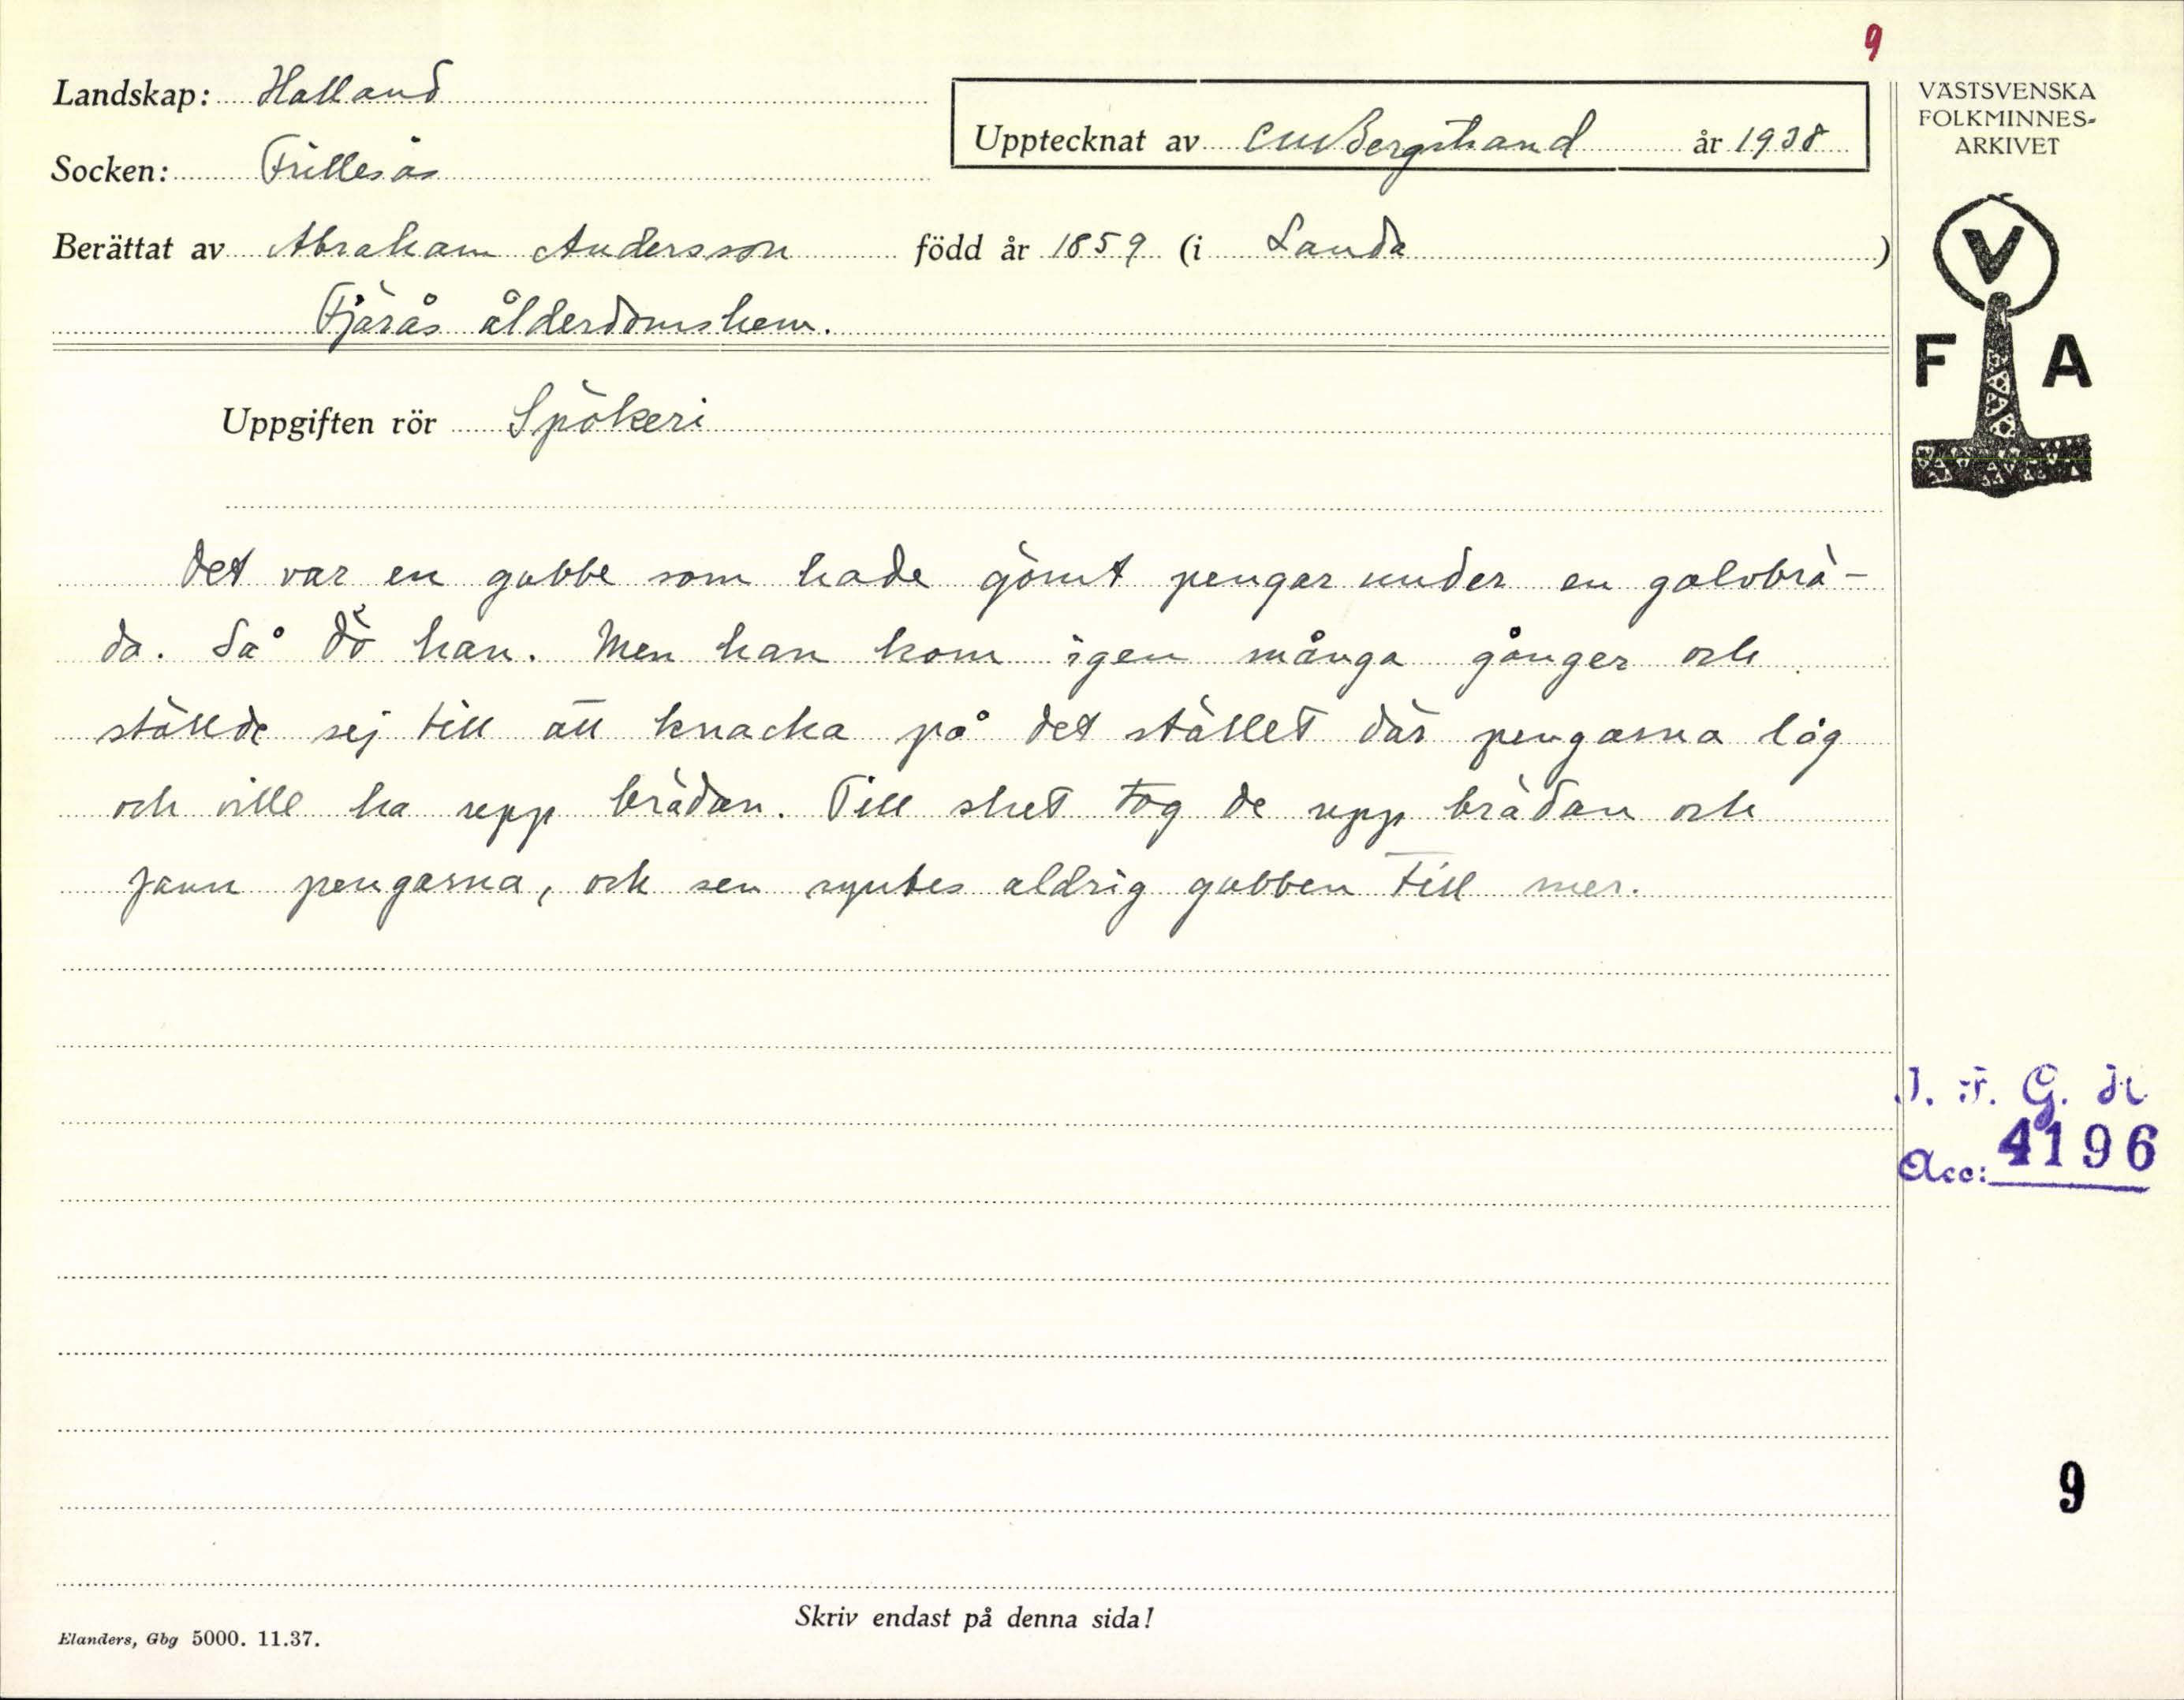 9
Landskap: Halland
Upptecknat av CMBergstrand år 1938
Socken: Frillesås
Berättat av Abraham Andersson född år 1859 (i Landa )
Fjärås ålderdomshem.
VÄSTSVENSKA
FOLKMINNES-
ARKIVET
V
F A
Uppgiften rör Spökeri
Det var en gubbe som hade gömt pengar under en golvbrä-
da. Så dö han. Men han kom igen många gånger och
ställde sej till att knacka på det stället där pengarna låg
och ville ha upp brädan. Till slut tog de upp brädan och
fann pengarna, och sen syntes aldrig gubben till mer.
I. F. G. H
Acc: 4196
9
Skriv endast på denna sida!
Elanders, Gbg 5000. 11.37.